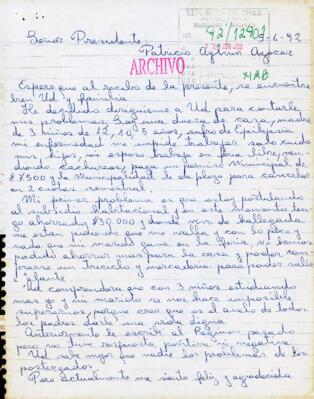 REPUBLICA DE CHILE
92/12907
Señor Presidente:
3-6-92
Patricio Aylwin Azocar
ARCHIVO
Espero que al recibo de la presente, se encuentre
bien Ud y familia
He decidido dirigirme a Ud para contarle
mis problemas, soy una dueña de casa, madre
de 3 niños de 12, 10, 5 años, sufro de Epilepsia
mi enfermedad me impide trabajar solo cuido
mis hijos, mi esposo trabaja en feria libre ven-
diendo cachureos, paga un permiso Municipal de
$7500 y la Municipalidad le da plazo para cancelar
en 2 cuotas semestral.
Mi primer problema es que estoy postulando
al subsidio Habitacional y en este momento tengo
ahorrado $30.000 y donde vivo de hallegada
me estan pidiendo que me vaya y con lo poco y
nada que mi marido gana en la feria, no hemos
podido ahorrar mas para la casa y poder com-
prarse un triciclo y mercaderia para poder salir
adelante.
Ud comprendera que con 3 niños estudiando
mas yo y mi marido se nos hace imposible
superarnos, porque creo que es el anelo de todos
los padres darle una vida digna.
Anteriormente le escribi al Regimen pasado
pero no tuve respuesta positiva ni negativa.
Ud sabe mejor que nadie los problemas de los
postergados.
Pero actualmente me siento feliz y agradecida